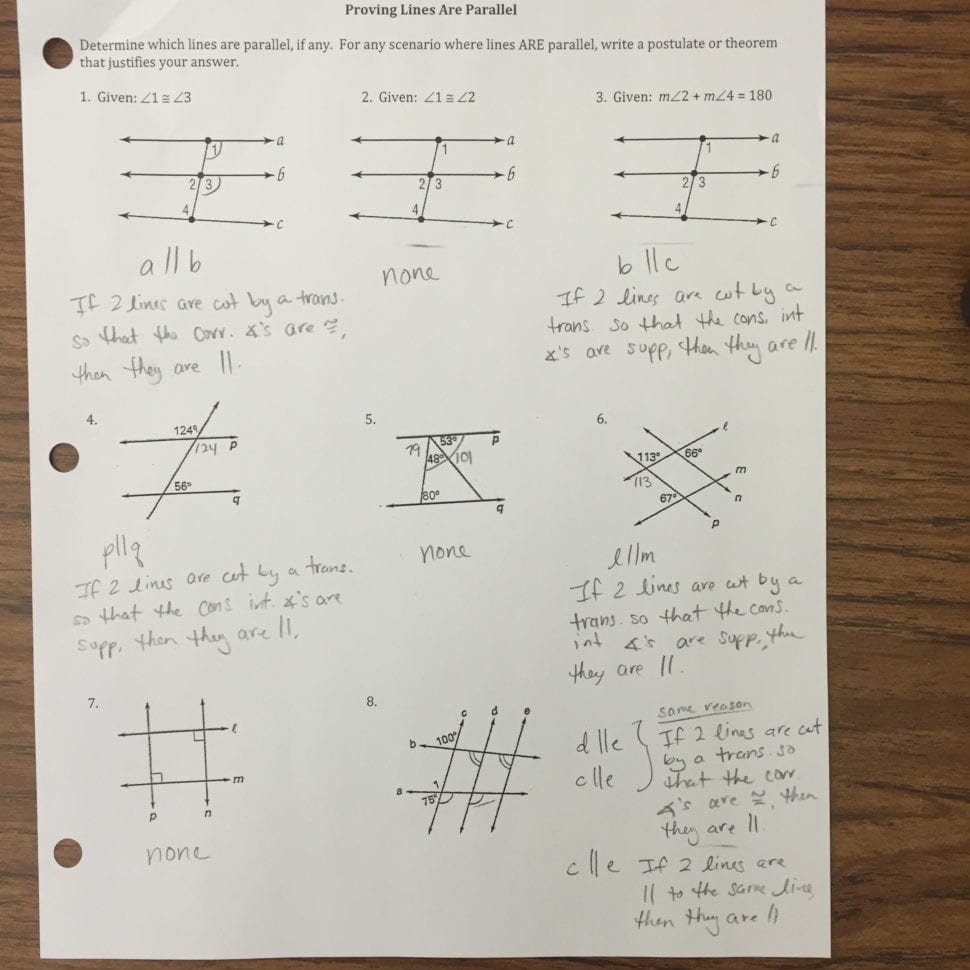 Proving Lines Are Parallel
Determine which lines are parallel, if any. For any scenario where lines ARE parallel, write a postulate or theorem
that justifies your answer.
1. Given: ∠1 ≅ ∠3
a
1
b
2 3
4
c
a || b
If 2 lines are cut by a trans.
so that the corr. ∡'s are ≅,
then they are ||.
2. Given: ∠1 ≅ ∠2
a
1
b
2 3
4
c
none
3. Given: m∠2 + m∠4 = 180
a
1
b
2 3
4
c
b || c
If 2 lines are cut by a
trans so that the cons. int
∡'s are supp, then they are ||.
4.
124°
124 p
56°
q
p||q
If 2 lines are cut by a trans.
so that the cons int. ∡'s are
supp, then they are ||.
5.
53° p
79 48° 101
80°
q
none
6.
ℓ
113° 66°
m
113
67° n
p
ℓ||m
If 2 lines are cut by a
trans. so that the cons.
int ∡'s are supp., then
they are ||.
7.
ℓ
m
p n
none
8.
c d e
b 100°
a 1
75°
d||e
c||e
same reason
If 2 lines are cut
by a trans. so
that the corr
∡'s are ≅, then
they are ||.
c||e If 2 lines are
|| to the same line,
then they are ||